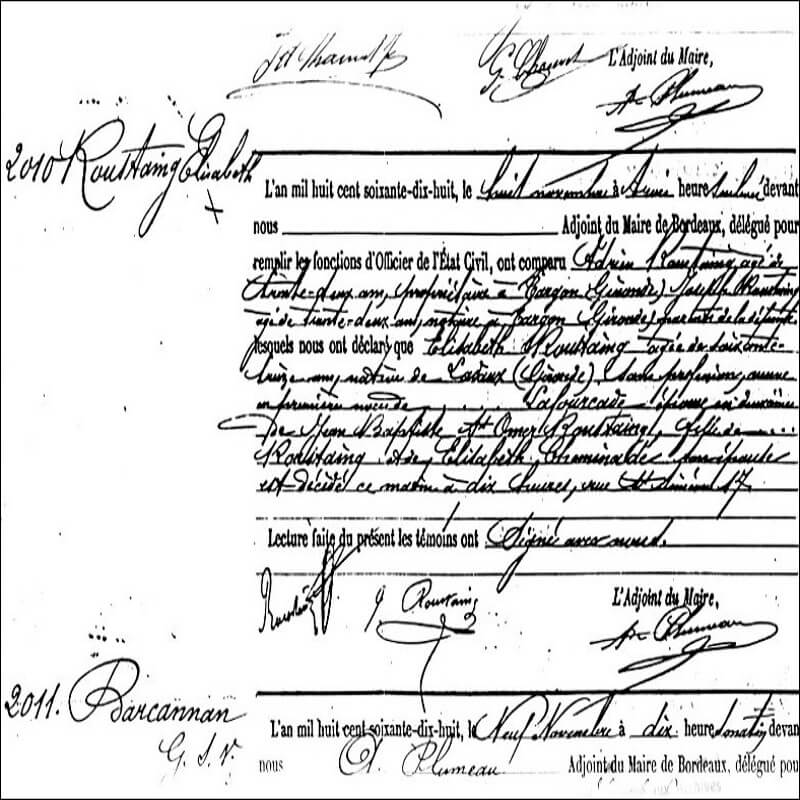 L'Adjoint du Maire,
A. Plumeau
2010 Roustaing Elisabeth
L'an mil huit cent soixante-dix-huit, le huit novembre à heure devant
nous Adjoint du Maire de Bordeaux, délégué pour
remplir les fonctions d'Officier de l'État Civil, ont comparu Adrien Roustaing agé de
trente-deux ans, propriétaire à Targon (Gironde) Joseph Roustaing
agé de trente-deux ans, notaire à Targon (Gironde) de la défunte
lesquels nous ont déclaré que Elisabeth Roustaing agée de soixante-
treize ans, native de (Gironde) sans profession, veuve
en première noces de ... Lafourcade épouse en deuxième
de Jean Baptiste Omer Roustaing, fille de ...
Roustaing et de Elisabeth
est décédé ce matin à dix heures, rue St Siméon 17.
Lecture faite du présent les témoins ont Signé avec nous.
J. Roustaing
L'Adjoint du Maire,
A. Plumeau
2011. Barcannan
G. S. V.
L'an mil huit cent soixante-dix-huit, le Neuf Novembre à dix heure du matin devan
nous A. Plumeau Adjoint du Maire de Bordeaux, délégué pou